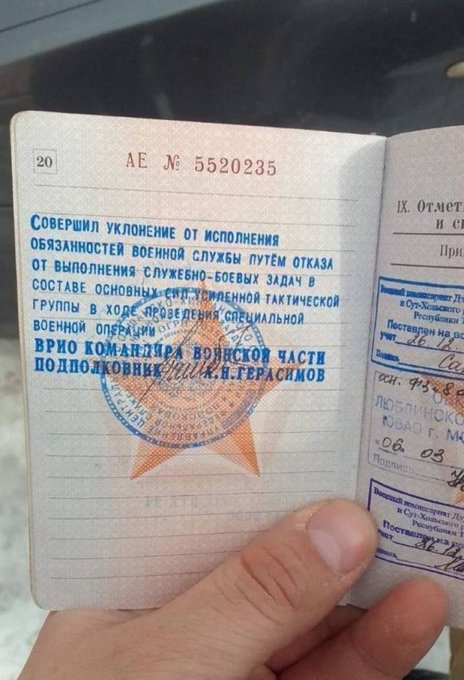 20
АЕ № 5520235
СОВЕРШИЛ УКЛОНЕНИЕ ОТ ИСПОЛНЕНИЯ
ОБЯЗАННОСТЕЙ ВОЕННОЙ СЛУЖБЫ ПУТЁМ ОТКАЗА
ОТ ВЫПОЛНЕНИЯ СЛУЖЕБНО-БОЕВЫХ ЗАДАЧ В
СОСТАВЕ ОСНОВНЫХ СИЛ УСИЛЕННОЙ ТАКТИЧЕСКОЙ
ГРУППЫ В ХОДЕ ПРОВЕДЕНИЯ СПЕЦИАЛЬНОЙ
ВОЕННОЙ ОПЕРАЦИИ
ВРИО КОМАНДИРА ВОИНСКОЙ ЧАСТИ
ПОДПОЛКОВНИК К.Н.ГЕРАСИМОВ
IX. Отмет
и с
При
Военный комиссариат Дз
и Сут-Хольского
Республики
Поставлен на
учет 26.12
ЛЮБЛИНСКО
ЮВАО г. М
06. 03
Подпись
Военный комиссариат Дз
и Сут-Хольского
Республики
Поставлен на
учет